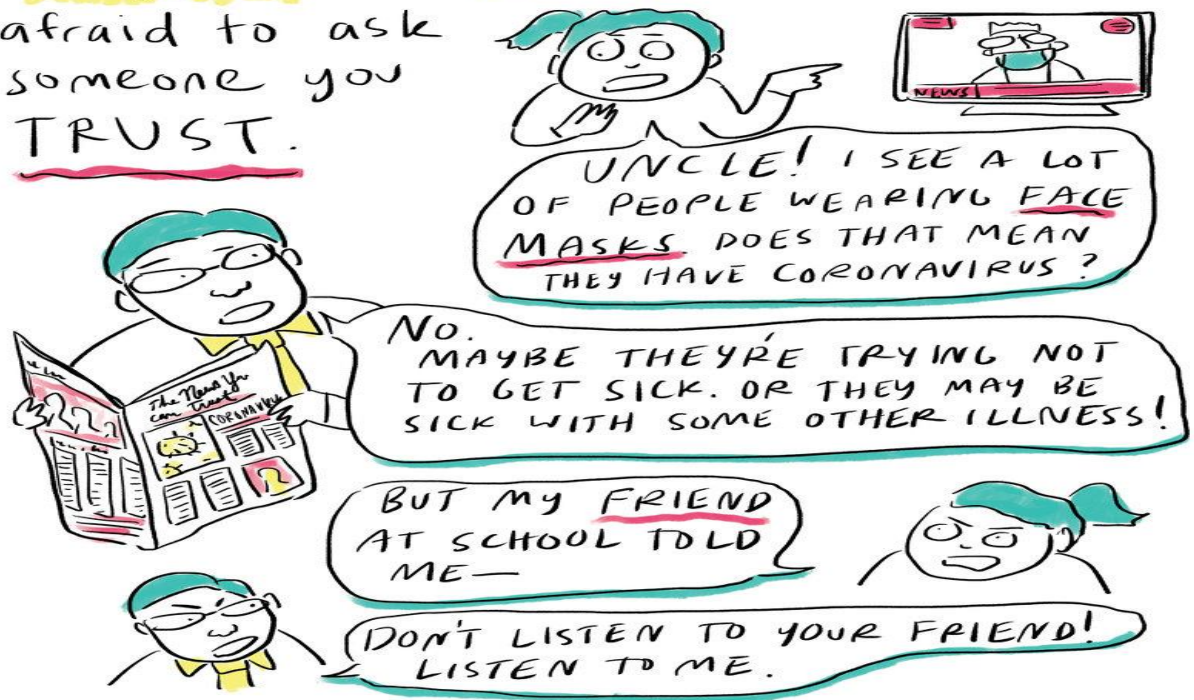 afraid to ask
someone you
TRUST.
NEWS
UNCLE! I SEE A LOT
OF PEOPLE WEARING FACE
MASKS. DOES THAT MEAN
THEY HAVE CORONAVIRUS?
NO.
MAYBE THEY'RE TRYING NOT
TO GET SICK. OR THEY MAY BE
SICK WITH SOME OTHER ILLNESS!
The News You
can trust
CORONAVIRUS
BUT MY FRIEND
AT SCHOOL TOLD
ME—
DON'T LISTEN TO YOUR FRIEND!
LISTEN TO ME.